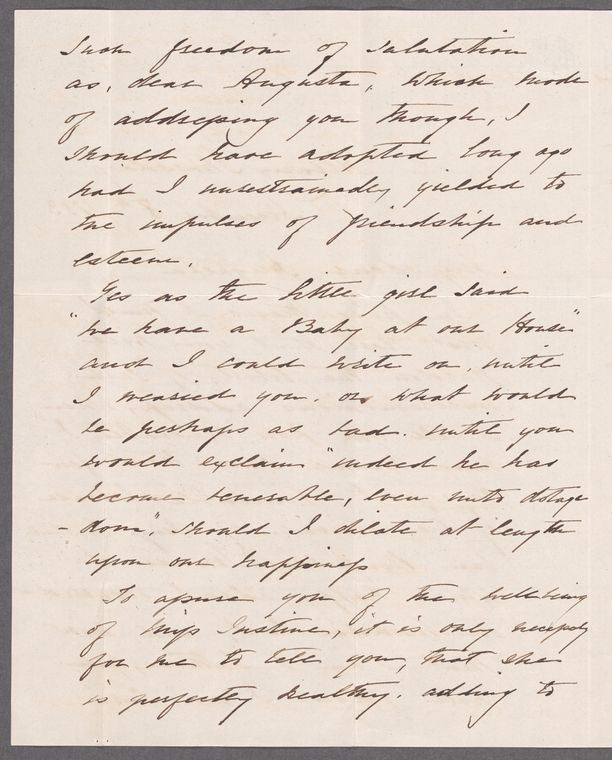 Such freedom of salutation
as, dear Augusta, which mode
of addressing you though, I
should have adopted long ago
had I unrestrainedly yielded to
the impulses of friendship and
esteem.
Yes as the little girl said
"we have a Baby at our House"
and I could write on, until
I wearied you. or what would
be perhaps as bad. until you
would exclaim "indeed he has
become venerable, even unto dotage
-dom", should I dilate at length
upon our happiness
To assure you of the well-being
of Miss Justine, it is only necessary
for me to tell you, that she
is perfectly healthy. adding to